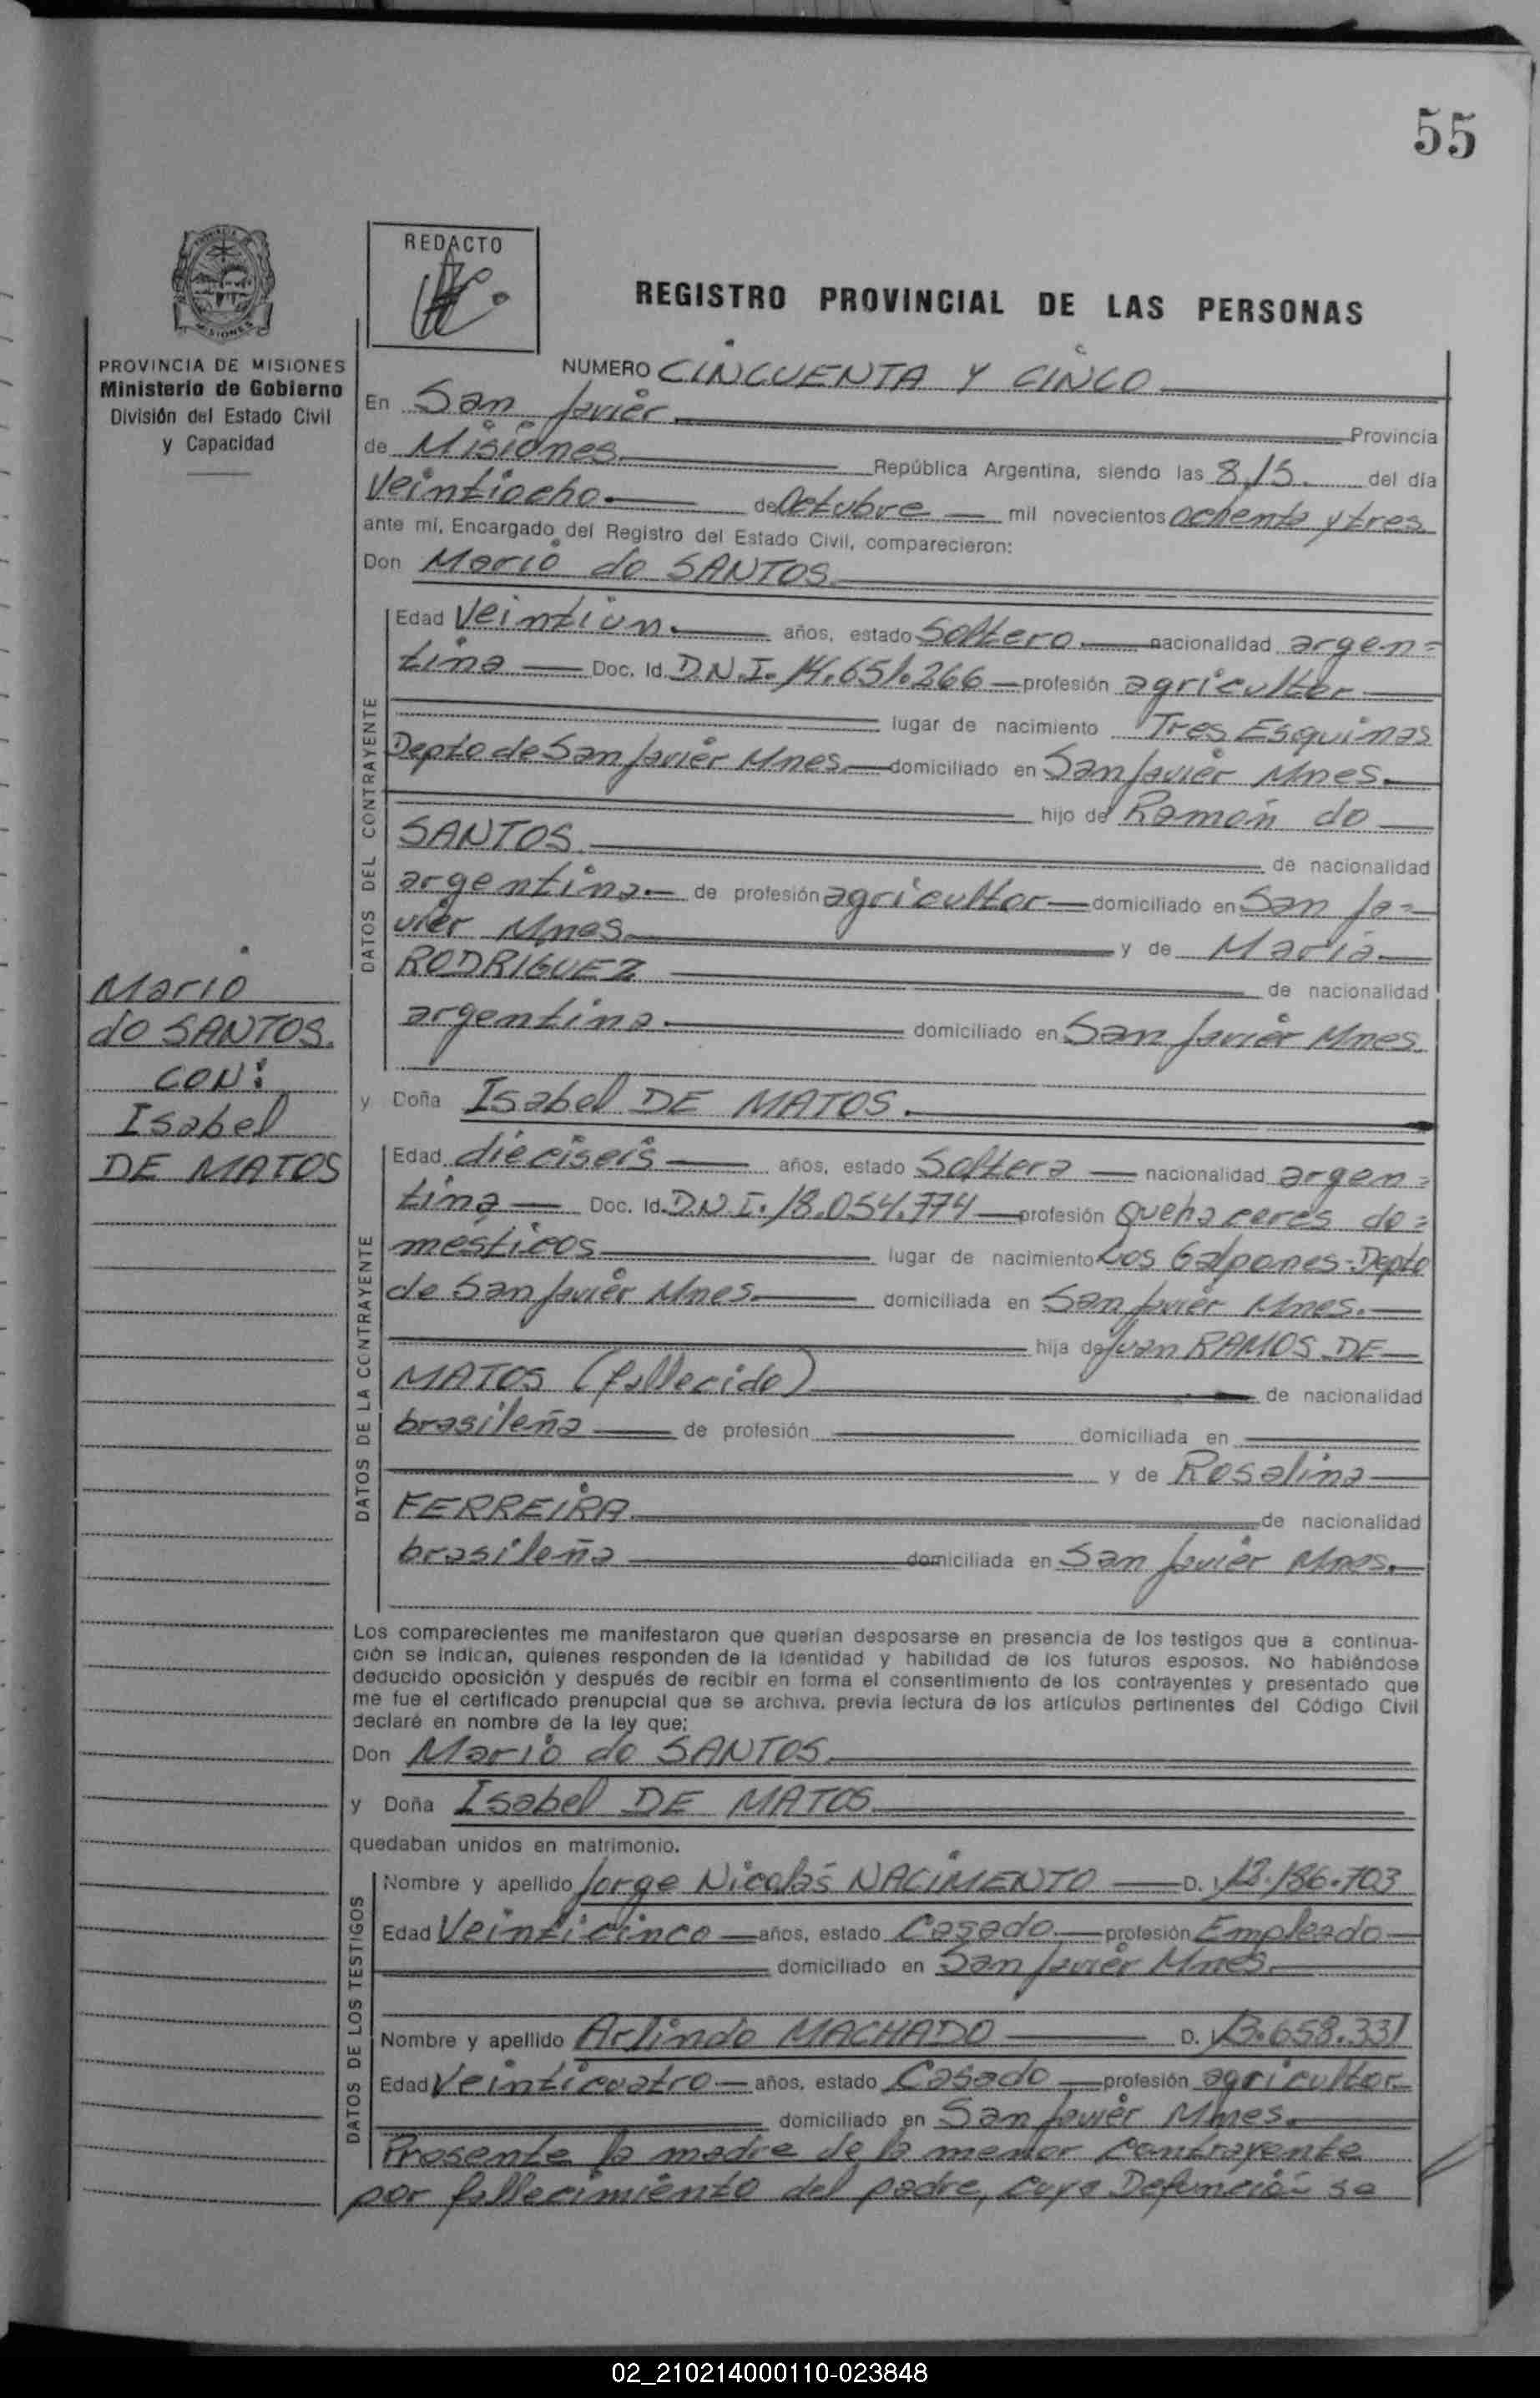 55
PROVINCIA DE MISIONES
Ministerio de Gobierno
División del Estado Civil
y Capacidad
REDACTO
REGISTRO PROVINCIAL DE LAS PERSONAS
NUMERO CINCUENTA Y CINCO
En San Javier Provincia
de Misiones República Argentina, siendo las 8,15. del día
Veintiocho. de Octubre mil novecientos ochenta y tres
ante mí, Encargado del Registro del Estado Civil, comparecieron:
Don Mario do SANTOS
DATOS DEL CONTRAYENTE
Edad Veintiun. años, estado Soltero. nacionalidad argen=
tina Doc. Id. D.N.I. 14.651.266 profesión agricultor
lugar de nacimiento Tres Esquinas
Depto de San Javier Mnes. domiciliado en San Javier Mnes.
hijo de Ramón do
SANTOS de nacionalidad
argentina. de profesión agricultor domiciliado en San Ja=
vier Mnes. y de María
RODRIGUEZ de nacionalidad
argentina. domiciliado en San Javier Mnes.
Mario
do SANTOS.
CON:
Isabel
DE MATOS
y Doña Isabel DE MATOS.
DATOS DE LA CONTRAYENTE
Edad dieciseis años, estado Soltera nacionalidad argen=
tina Doc. Id. D.N.I. 18.054.774 profesión Quehaceres do=
mésticos lugar de nacimiento Los Galpones-Depto
de San Javier Mnes. domiciliada en San Javier Mnes.
hija de Juan RAMOS DE
MATOS (fallecido) de nacionalidad
brasileña de profesión domiciliada en
y de Rosalina
FERREIRA de nacionalidad
brasileña domiciliada en San Javier Mnes.
Los comparecientes me manifestaron que querían desposarse en presencia de los testigos que a continua-
ción se indican, quienes responden de la identidad y habilidad de los futuros esposos. No habiéndose
deducido oposición y después de recibir en forma el consentimiento de los contrayentes y presentado que
me fue el certificado prenupcial que se archiva, previa lectura de los artículos pertinentes del Código Civil
declaré en nombre de la ley que:
Don Mario do SANTOS.
y Doña Isabel DE MATOS
quedaban unidos en matrimonio.
DATOS DE LOS TESTIGOS
Nombre y apellido Jorge Nicolás NACIMENTO D. I. 12.186.703
Edad Veinticinco años, estado Casado. profesión Empleado
domiciliado en San Javier Mnes.
Nombre y apellido Arlindo MACHADO D. I. 13.658.331
Edad Veinticuatro años, estado Casado profesión agricultor
domiciliado en San Javier Mnes.
Presente la madre de la menor contrayente
por fallecimiento del padre, cuya Defunción se
02_210214000110-023848